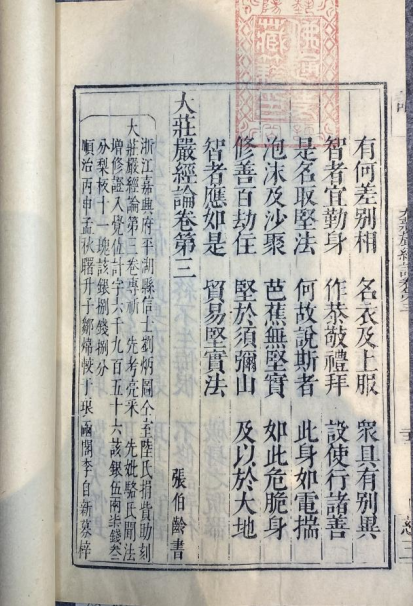 有何差別相　名衣及上服　衆具有別異
智者宜勤身　作恭敬禮拜　設使行諸善
是名取堅法　何故說斯者　此身如電揣
泡沫及沙聚　芭蕉無堅實　如此危脆身
修善百劫住　堅於須彌山　及以於大地
智者應如是　貿易堅實法
大莊嚴經論卷第三　張伯齡書
浙江嘉興府平湖縣信士劉炳圖仝室陸氏捐貲助刻
大莊嚴經論第三卷專祈　先考亮采　先妣駱氏聞法
增修證入覺位計字六千九百五十六該銀伍兩柒錢叁
分梨板十一塊該銀捌錢捌分
順治丙申孟秋曙升子鄒熵較于琅函閣李自新募梓